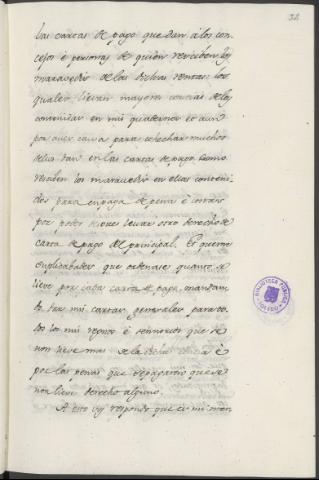 32
las cartas de pago que dan á los con-
cejos é personas de quien reciben los
maravedis de las dichas rentas: los
quales llevan mayores contias de las
contenidas en mi quaderno: et aun
por aver causa para cohechar muchos
dellos dan en las cartas de pago como
reciben los maravedis en ellas conteni-
dos para en paga de pena é costas
por poder llevar otro derecho de
carta de pago del principal. Et quanto
suplicabades que ordenase quanto se
lieve por cada carta de pago, mandan-
do dar mis cartas generales para to-
dos los mis regnos é sennorios que se
non lieve mas de la dicha é
por las penas que se pagaren que se
non lieve derecho alguno.
A esto vos respondo que es mi mer-
BIBLIOTECA PUBLICA
TOLEDO